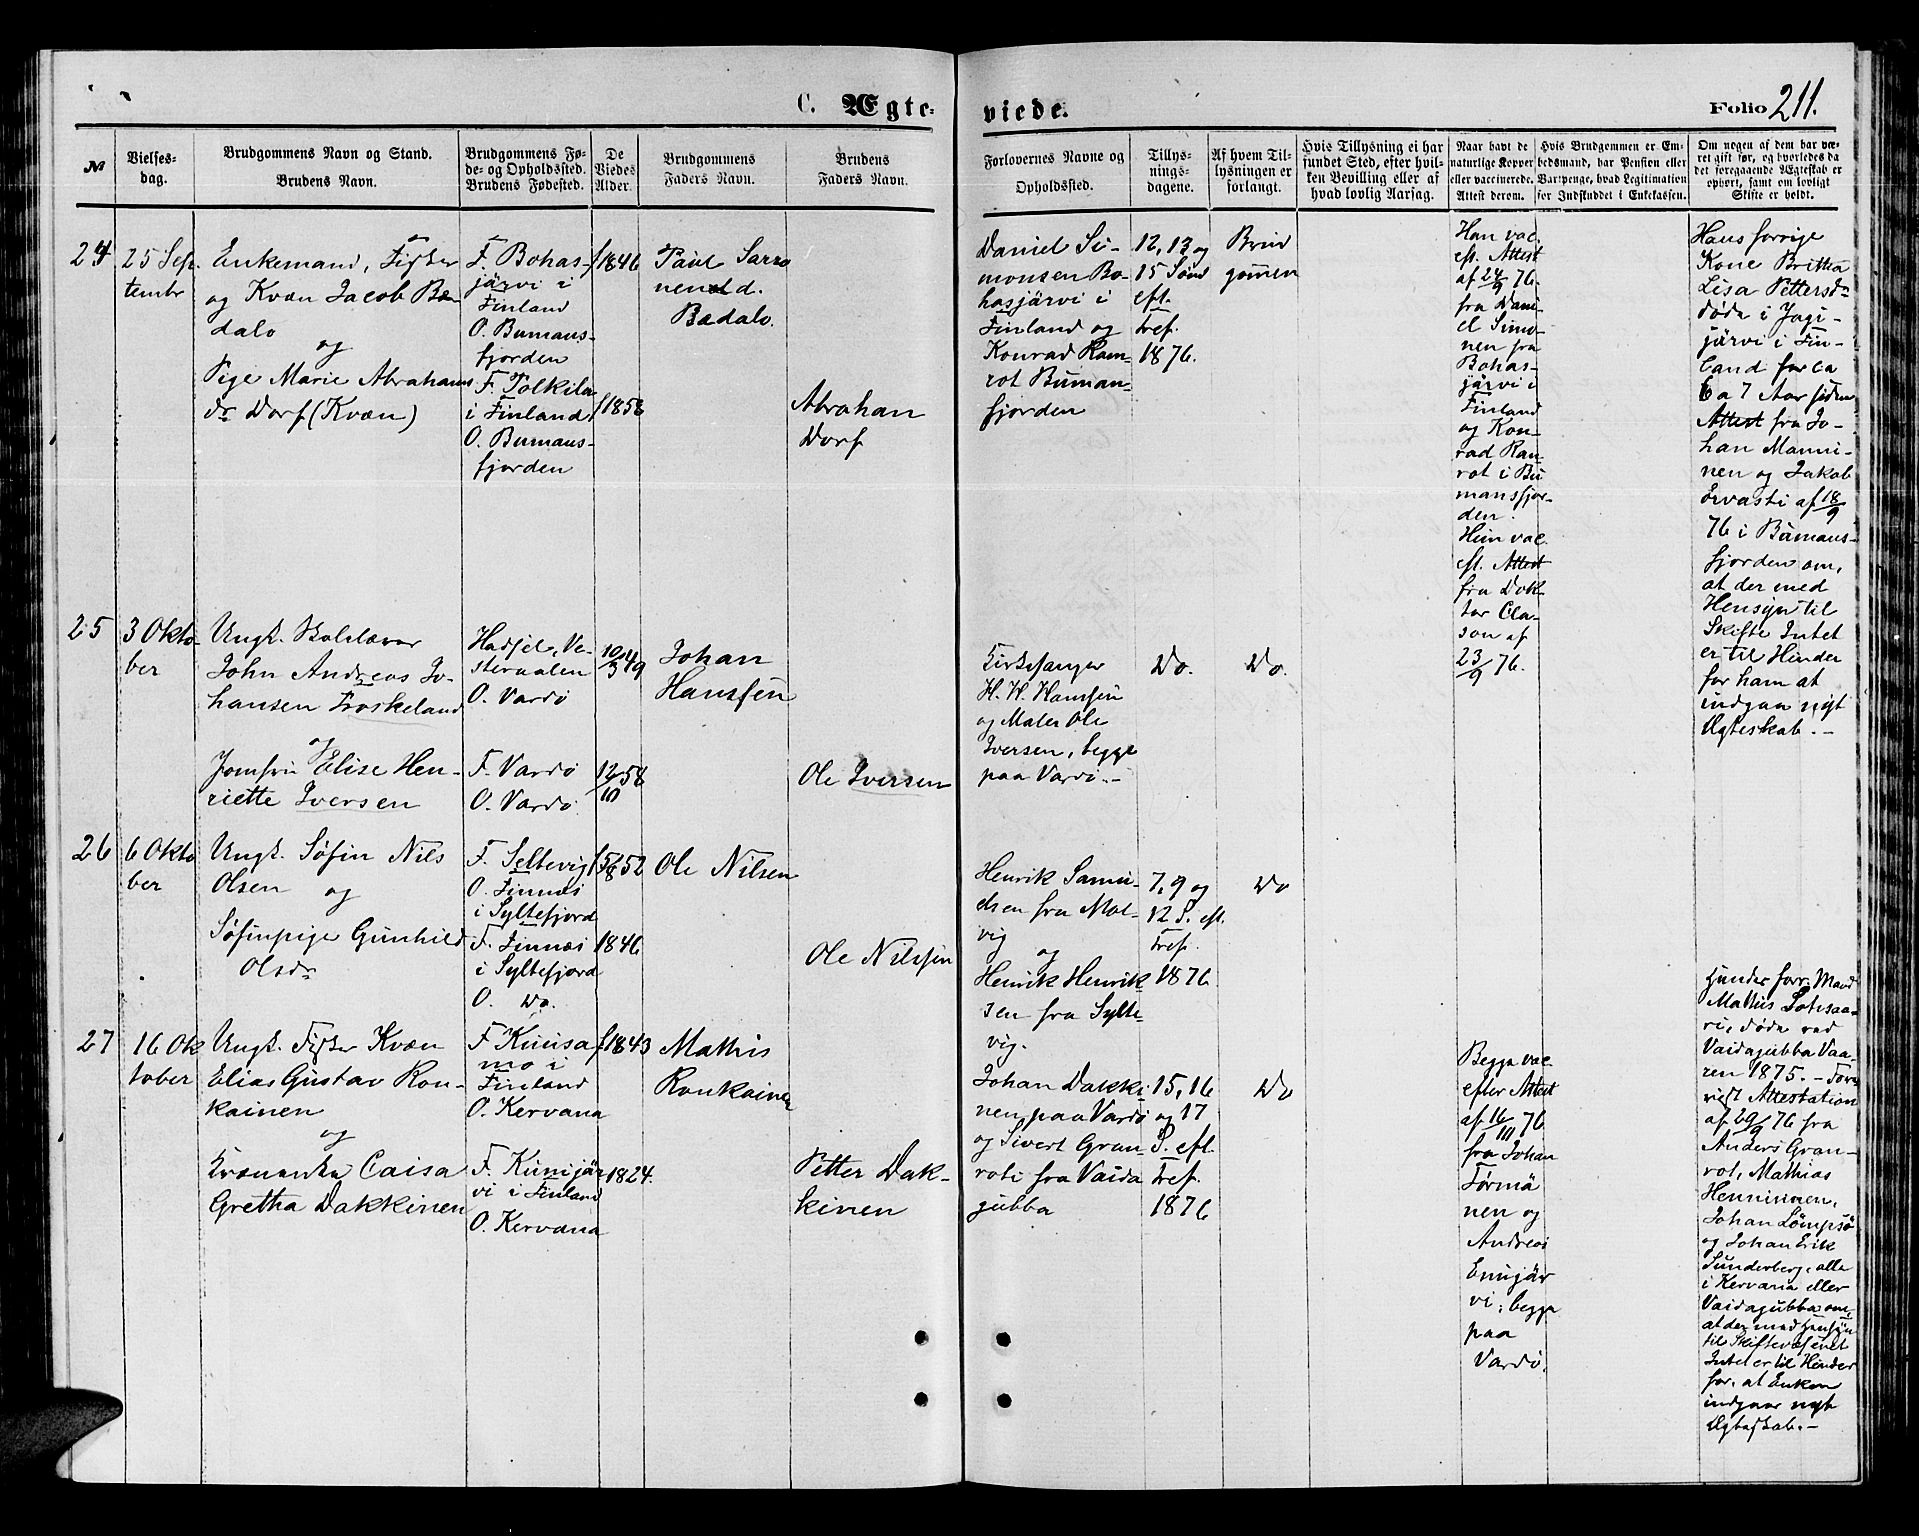 C. Ægte-
viede.
Folio 211.
№
Vielses-
dag.
Brudgommens Navn og Stand.
Brudens Navn.
Brudgommens Fø-
de- og Opholdssted.
Brudens Fødested.
De
Viedes
Alder.
Brudgommens
Faders Navn.
Brudens
Faders Navn.
Forlovernes Navne og
Opholdssted.
Tillys-
nings-
dagene.
Af hvem Til-
lysningen er
forlangt.
Hvis Tillysning ei har
fundet Sted, efter hvil-
ken Bevilling eller af
hvad lovlig Aarsag.
Naar havt de
naturlige Kopper
eller vaccinerede.
Attest derom.
Hvis Brudgommen er Em-
bedsmand, har Pension eller
Vartpenge, hvad Legitimation
for Indskuddet i Enkekassen.
Om nogen af dem har væ-
ret gift før, og hvorledes da
det foregaaende Ægteskab er
ophørt, samt om lovligt
Skifte er holdt.
24
25 Sep-
tembr
Enkemand, Fisker
og Kvæn Jacob Bæ-
dalo
og
Pige Marie Abrahams
dr Dorf (Kvæn)
F. Bohas-
järvi i
Finland
O. Bumans-
fjorden
F. Polkila
i Finland
O. Bumans-
fjorden
f 1846
f 1858
Paul Sarro
nen d.
Bædalo.
Abrahan
Dorf
Daniel Si-
monsen Bo-
hasjärvi i
Finland og
Konrad Ram-
rot Buman-
fjorden
12, 13 og
15 Sønd
eft.
Tref.
1876.
Brud
gomen
Han vac.
eft. Attest
af 24/9 76.
fra Dani-
el Simo-
nen fra
Bohas-
järvi i
Finland
og Kon-
rad Ram-
rot i Bu
mansfjor-
den.
Hun vac.
eft. Attest
fra Dok-
tor Cla-
son af
23/9 76.
Hans forrige
Kone Britha
Lisa Pettersdr
døde i Jagi-
järvi i Fin-
land for ca
6 a 7 Aar siden
Attest fra Jo-
han Manni-
nen og Jakob
Ervasti af 18/9
76 i Bumans-
fjorden om,
at der med
Hensyn til
Skifte Intet
er til Hinder
for ham at
indgaa nyt
Ægteskab. –
25
3 Okto-
ber
Ungk. Skolelærer
John Andreas Jo-
hansen Froskeland
og
Jomfru Elise Hen-
riette Iversen
Hadsel, Ve-
steraalen
O. Vardø
F. Vardø
O. Vardø.
10/3 49
12/10 58
Johan
Hanssen
Ole Iversen
Kirkesanger
H. H. Hanssen
og Maler Ole
Iversen, begge
paa Vardø. –
Do.
Do.
26
6 Okto
ber
Ungk. Søfin Nils
Olsen og
Søfinpige Gunhild
Olsdr
F. Seltevig
O. Finnæs
i Syltefjord
F. Finnæs
i Syltefjord
O. Do.
f 5/8 52
1846
Ole Nilsen
Ole Nilssen
Henrik Samu-
elsen fra Mol-
vig
og
Henrik Henrik-
sen fra Sylte-
vig.
7, 9 og
12 S. eft.
Tref.
1876
Do
27
16 Ok
tober
Ungk. Fisker Kvæn
Elias Gustav Ron-
kainen
og
Kvænenke Caisa
Gretha Dakkinen
F Kuusa
mo i
Finland
O. Kervana
F. Kunijär
vi i Finland
O. Kervana
f 1843
1824.
Mathis
Ronkainen
Petter Dak-
kinen
Johan Dakki-
nen paa Vardø
og Sivert Gran-
roti fra Vaida
gubba
15, 16
og 17
S. eft.
Tref.
1876
Do
Begge vac.
efter Attest
af 16/10 76
fra Johan
Törmä
nen og
Andreas
Enijär
vi, begge
paa
Vardø.
Hendes forr. Mand
Mathis
døde ved
Vaidagubba Vaa-
ren 1875. –
Attestation
af 29/9 76 fra
Anders Gran-
rot, Mathias
Henninnen,
Johan Lömpsö
og Johan Erik
Sunderberg, alle
i Kervana eller
Vaidagubba om,
at der med Hensyn
til Skiftevæsenet
Intet er til Hinder
for, at Enken
indgaar nyt
Ægteskab. –